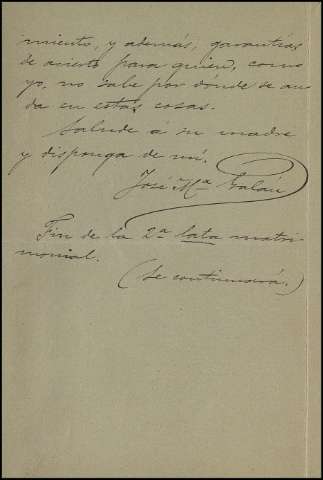 miento, y además, garantías
de acierto para quien, como
yo, no sabe por dónde se an
da en estas cosas.
Salude á su madre
y disponga de mí.
José Mª Galán
Fin de la 2ª lata matri
monial.
(Se continuará.)